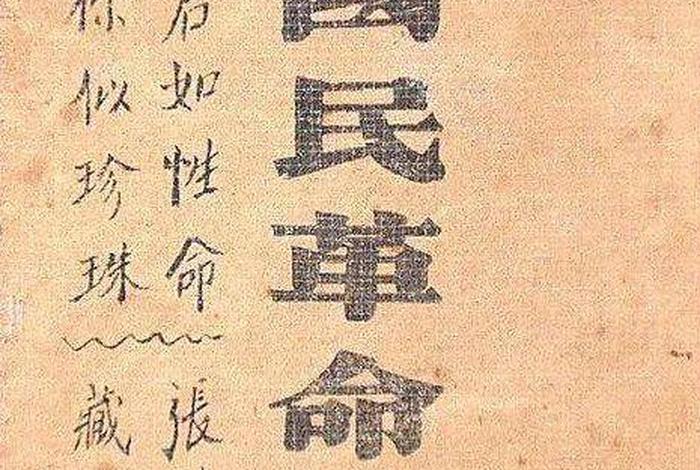 國民革命
君如性命 張
似珍珠 藏